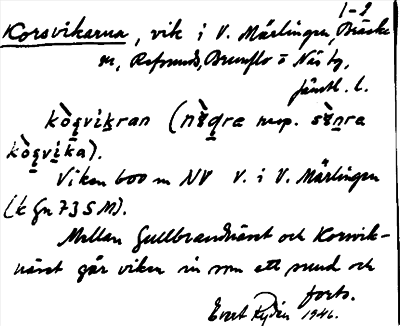 1-2
Korsvikarna, vik i V. Märlingen, Bräcke
sn, Refsund, Brunflo o Näs tg,
jämtl. l.
kò̀ꞩvikran (nɛ̀dre resp. sɛ̀nre
kò̀ꞩvika).
Viken 600 m NV V. i V. Märlingen
(k Gn 73 S M).
Mellan Gullbrandnäset och Korsvik-
näset går viken in som ett sund och
forts.
Evert Rydén 1946.